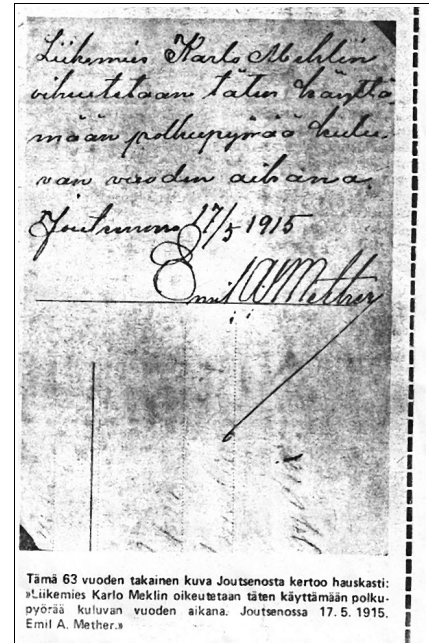 Liikemies Karlo Meklin
oikeutetaan täten käyttä-
mään polkupyörää kulu-
van vuoden aikana.
Joutsenossa 17/5 1915
Emil A. Mether
Tämä 63 vuoden takainen kuva Joutsenosta kertoo hauskasti:
»Liikemies Karlo Meklin oikeutetaan täten käyttämään polku-
pyörää kuluvan vuoden aikana. Joutsenossa 17. 5. 1915.
Emil A. Mether.»